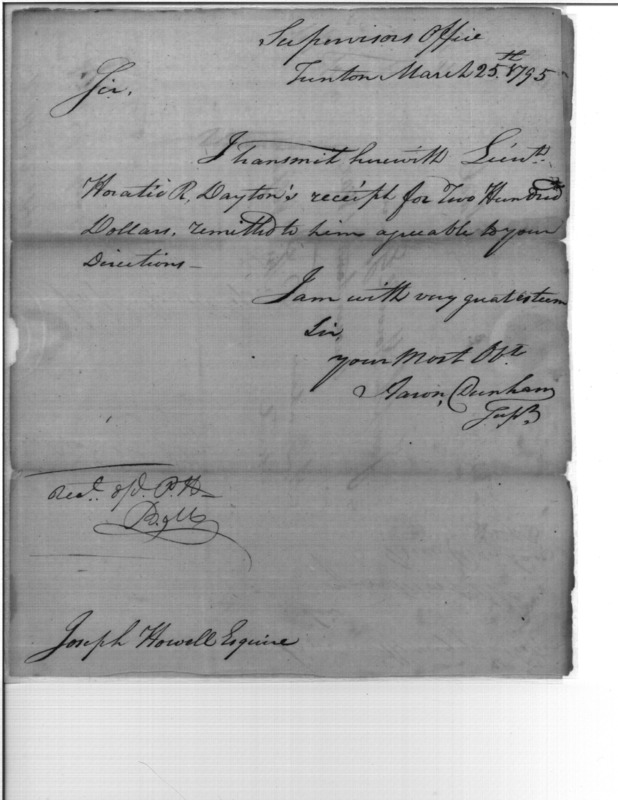 Supervisors Office
Trenton March 25th. 1795
Sir,
I transmit herewith Lieutt.
Horatio R, Dayton's receipt for Two Hundred
Dollars, remitted to him agreeable to your
Directions—
I am with very great esteem
Sir
your Most Obt.
Aaron, Dunham
Supr.
Recd.
Joseph Howell Esquire